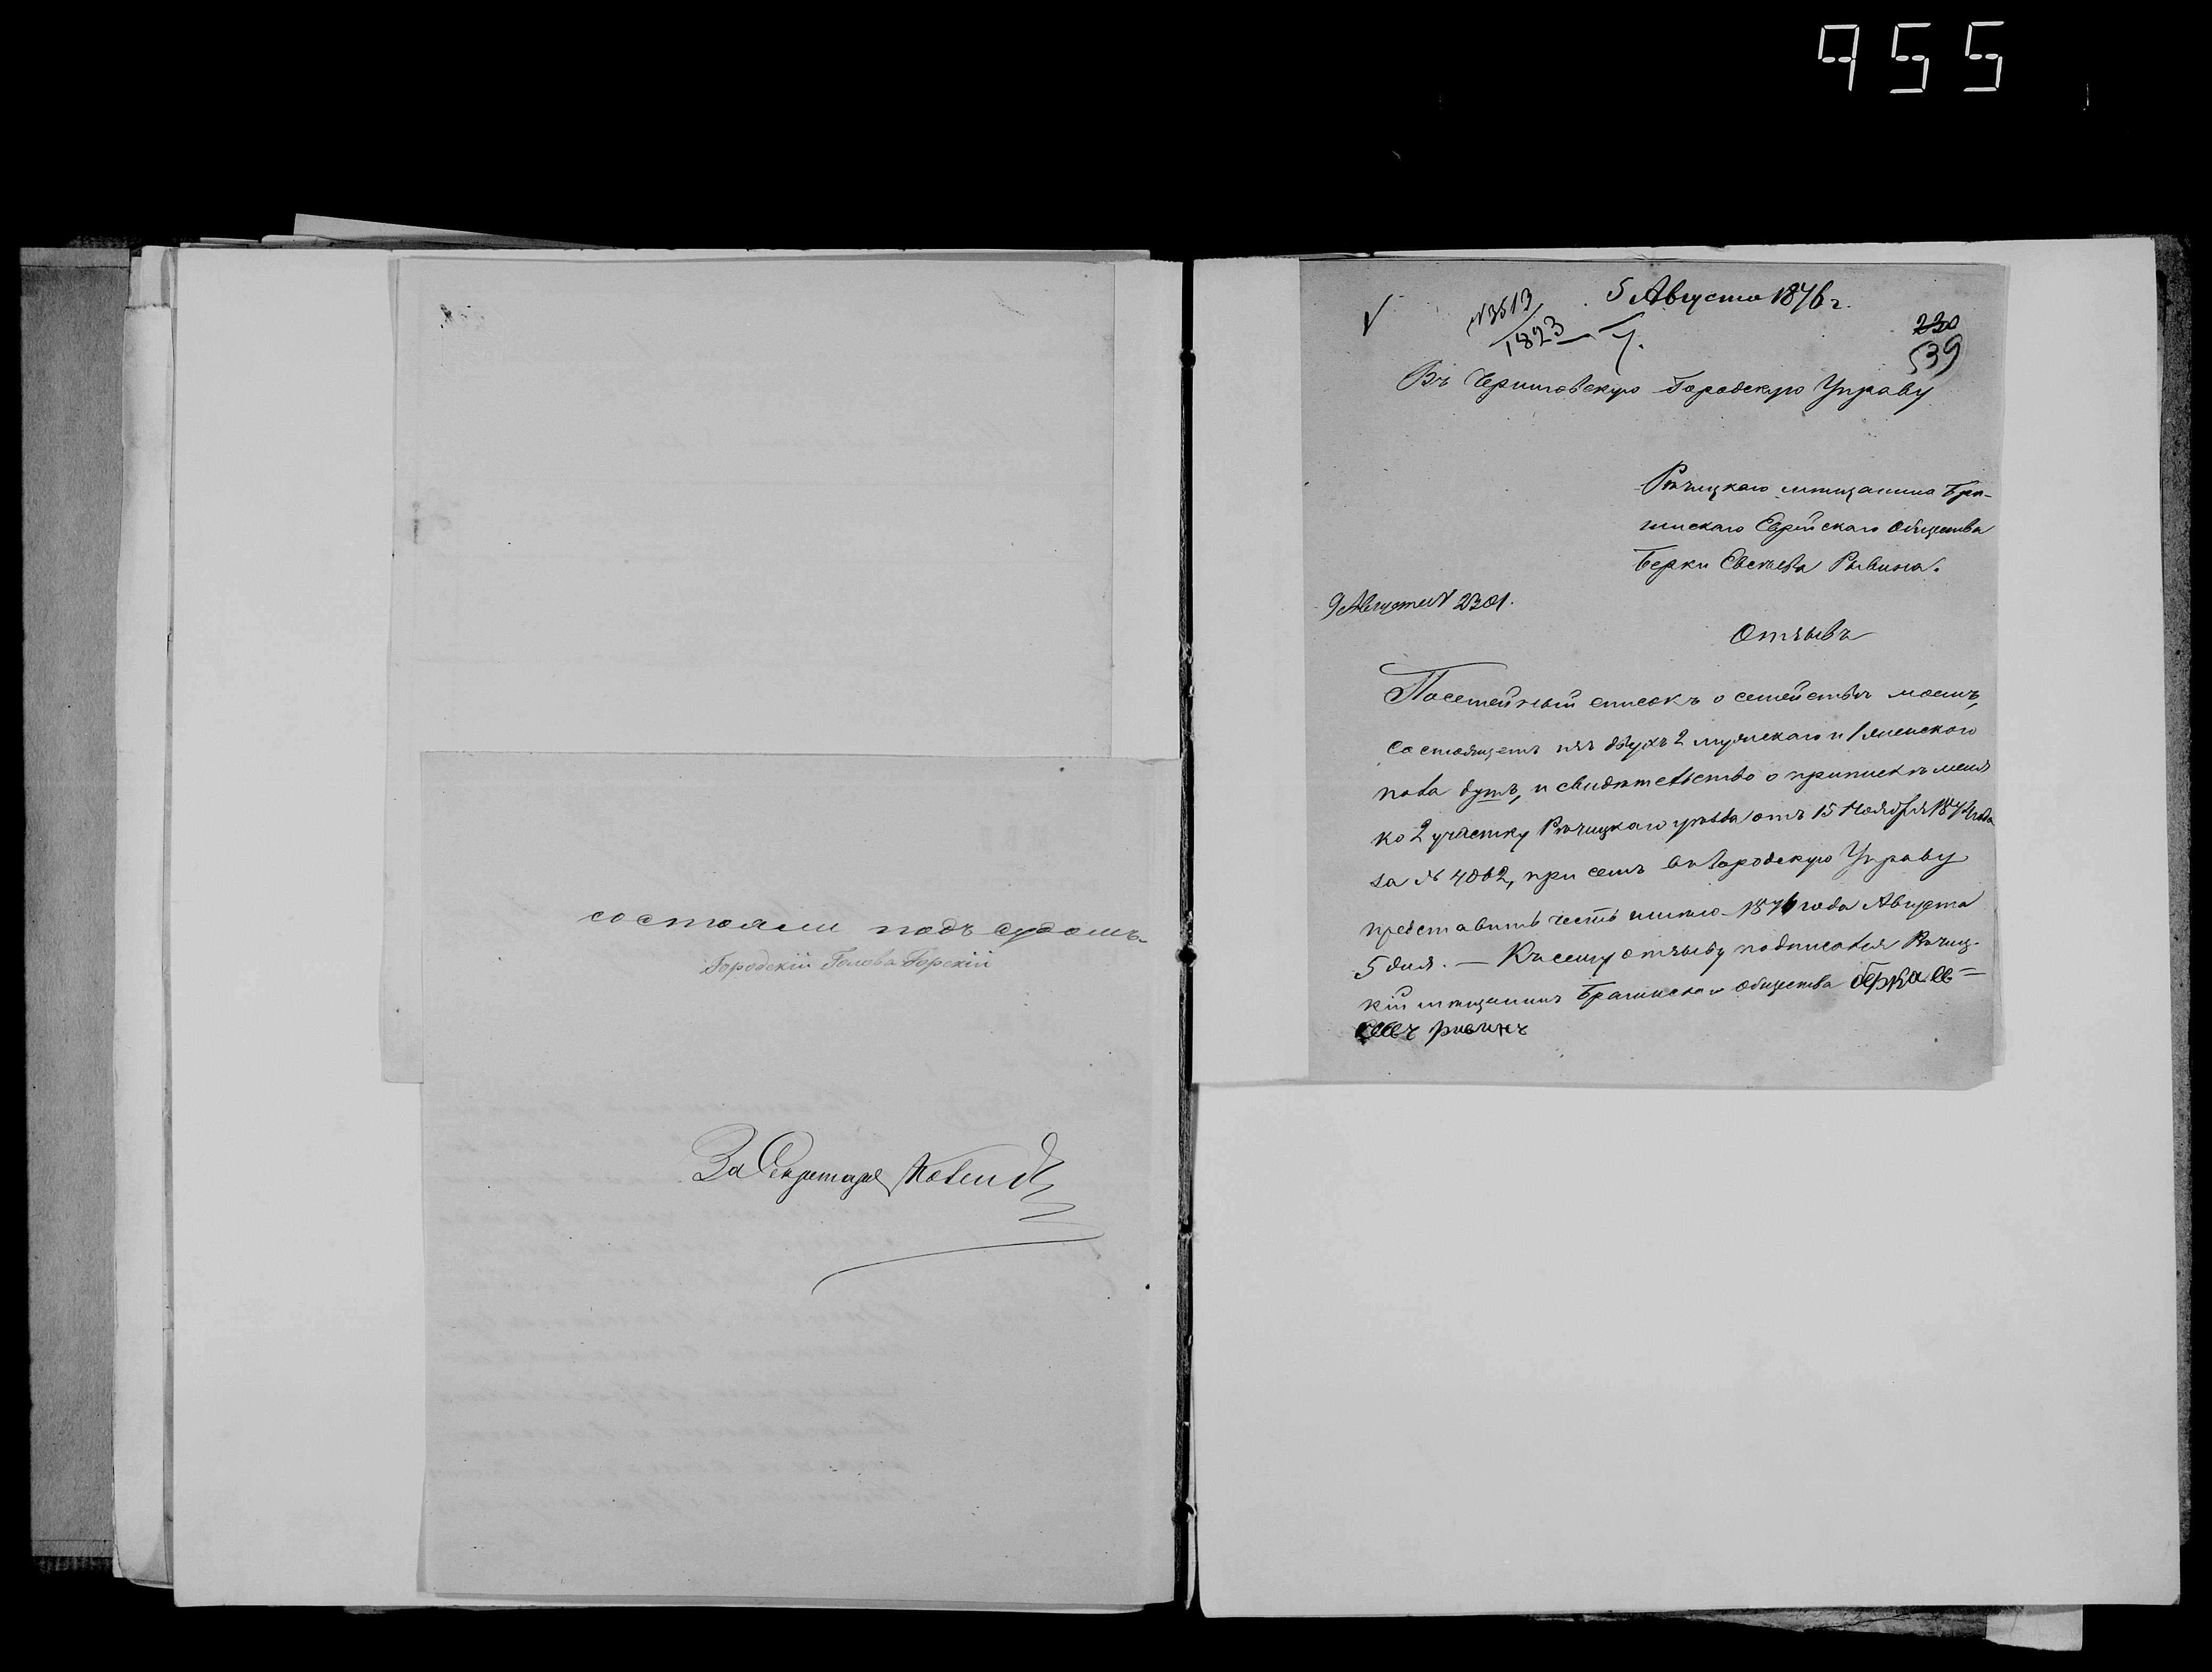 955
состояли подъ судомъ.
Городскій Голова Горскій
За Секретаря
5 Августа 1876 г.
№ 3513
1823
230
539
Въ Черниговскую Городскую Управу
Рѣчицкаго мѣщанина Бра-
гинскаго Еврейскаго Общества
Берки Евсѣева Рывина.
9 Августа № 2301.
Отзывъ
Посемейный списокъ о семействѣ моемъ,
состоящемъ изъ двухъ 2 мужскаго и 1 женского
пола душъ, и свидѣтельство о припискѣ меня
ко 2 участку Рѣчицкаго уѣзда отъ 15 Ноября 1874 года
за № 4862, при семъ въ Городскую Управу
представить честь имѣю. 1876 года Августа
5 дня. — Къ сему отзыву подписался Рѣчиц-
кій мѣщанинъ Брагинскаго общества берка ев-
сеевъ ривинъ